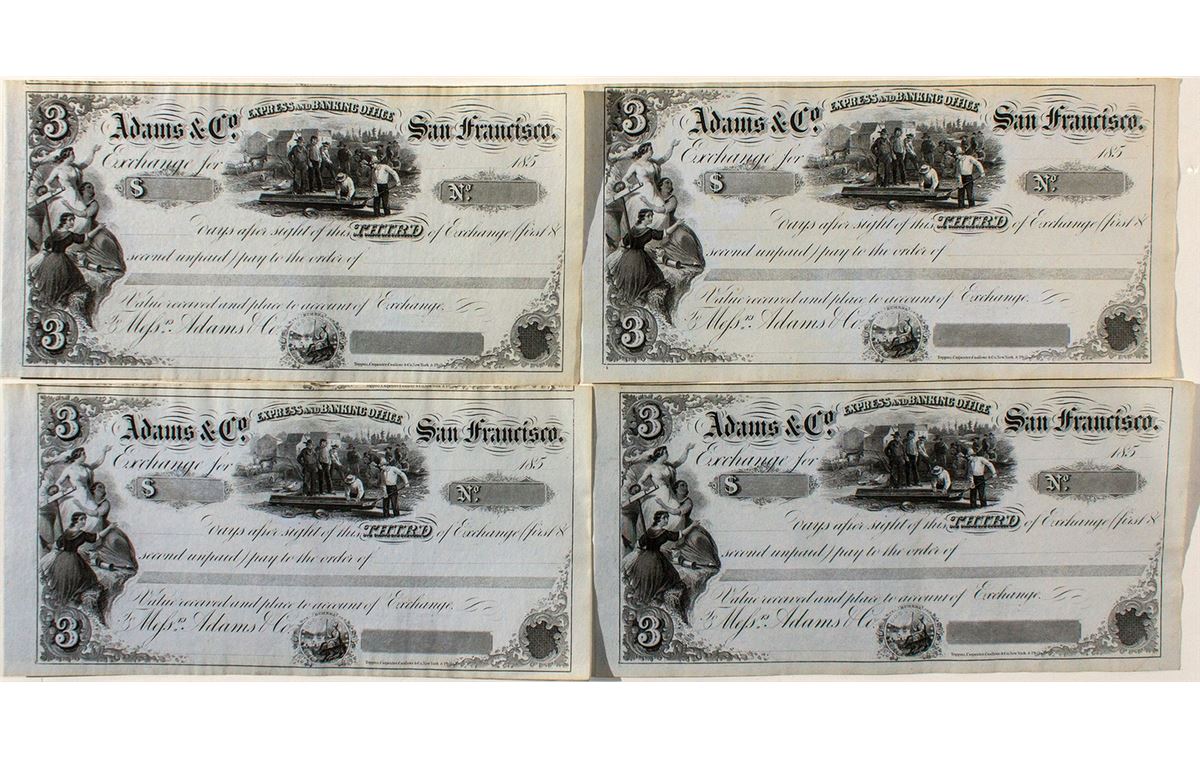 3
EXPRESS AND BANKING OFFICE
Adams & Co. San Francisco.
Exchange for 185
$ No.
Days after sight of this THIRD of Exchange (first &
second unpaid) pay to the order of
Value received and place to account of Exchange.
To Messrs. Adams & Co.
3
Toppan, Carpenter, Casilear & Co. New York & Phila.
3
EXPRESS AND BANKING OFFICE
Adams & Co. San Francisco.
Exchange for 185
$ No.
Days after sight of this THIRD of Exchange (first &
second unpaid) pay to the order of
Value received and place to account of Exchange.
To Messrs. Adams & Co.
3
Toppan, Carpenter, Casilear & Co. New York & Phila.
3
EXPRESS AND BANKING OFFICE
Adams & Co. San Francisco.
Exchange for 185
$ No.
Days after sight of this THIRD of Exchange (first &
second unpaid) pay to the order of
Value received and place to account of Exchange.
To Messrs. Adams & Co.
3
Toppan, Carpenter, Casilear & Co. New York & Phila.
3
EXPRESS AND BANKING OFFICE
Adams & Co. San Francisco.
Exchange for 185
$ No.
Days after sight of this THIRD of Exchange (first &
second unpaid) pay to the order of
Value received and place to account of Exchange.
To Messrs. Adams & Co.
3
Toppan, Carpenter, Casilear & Co. New York & Phila.